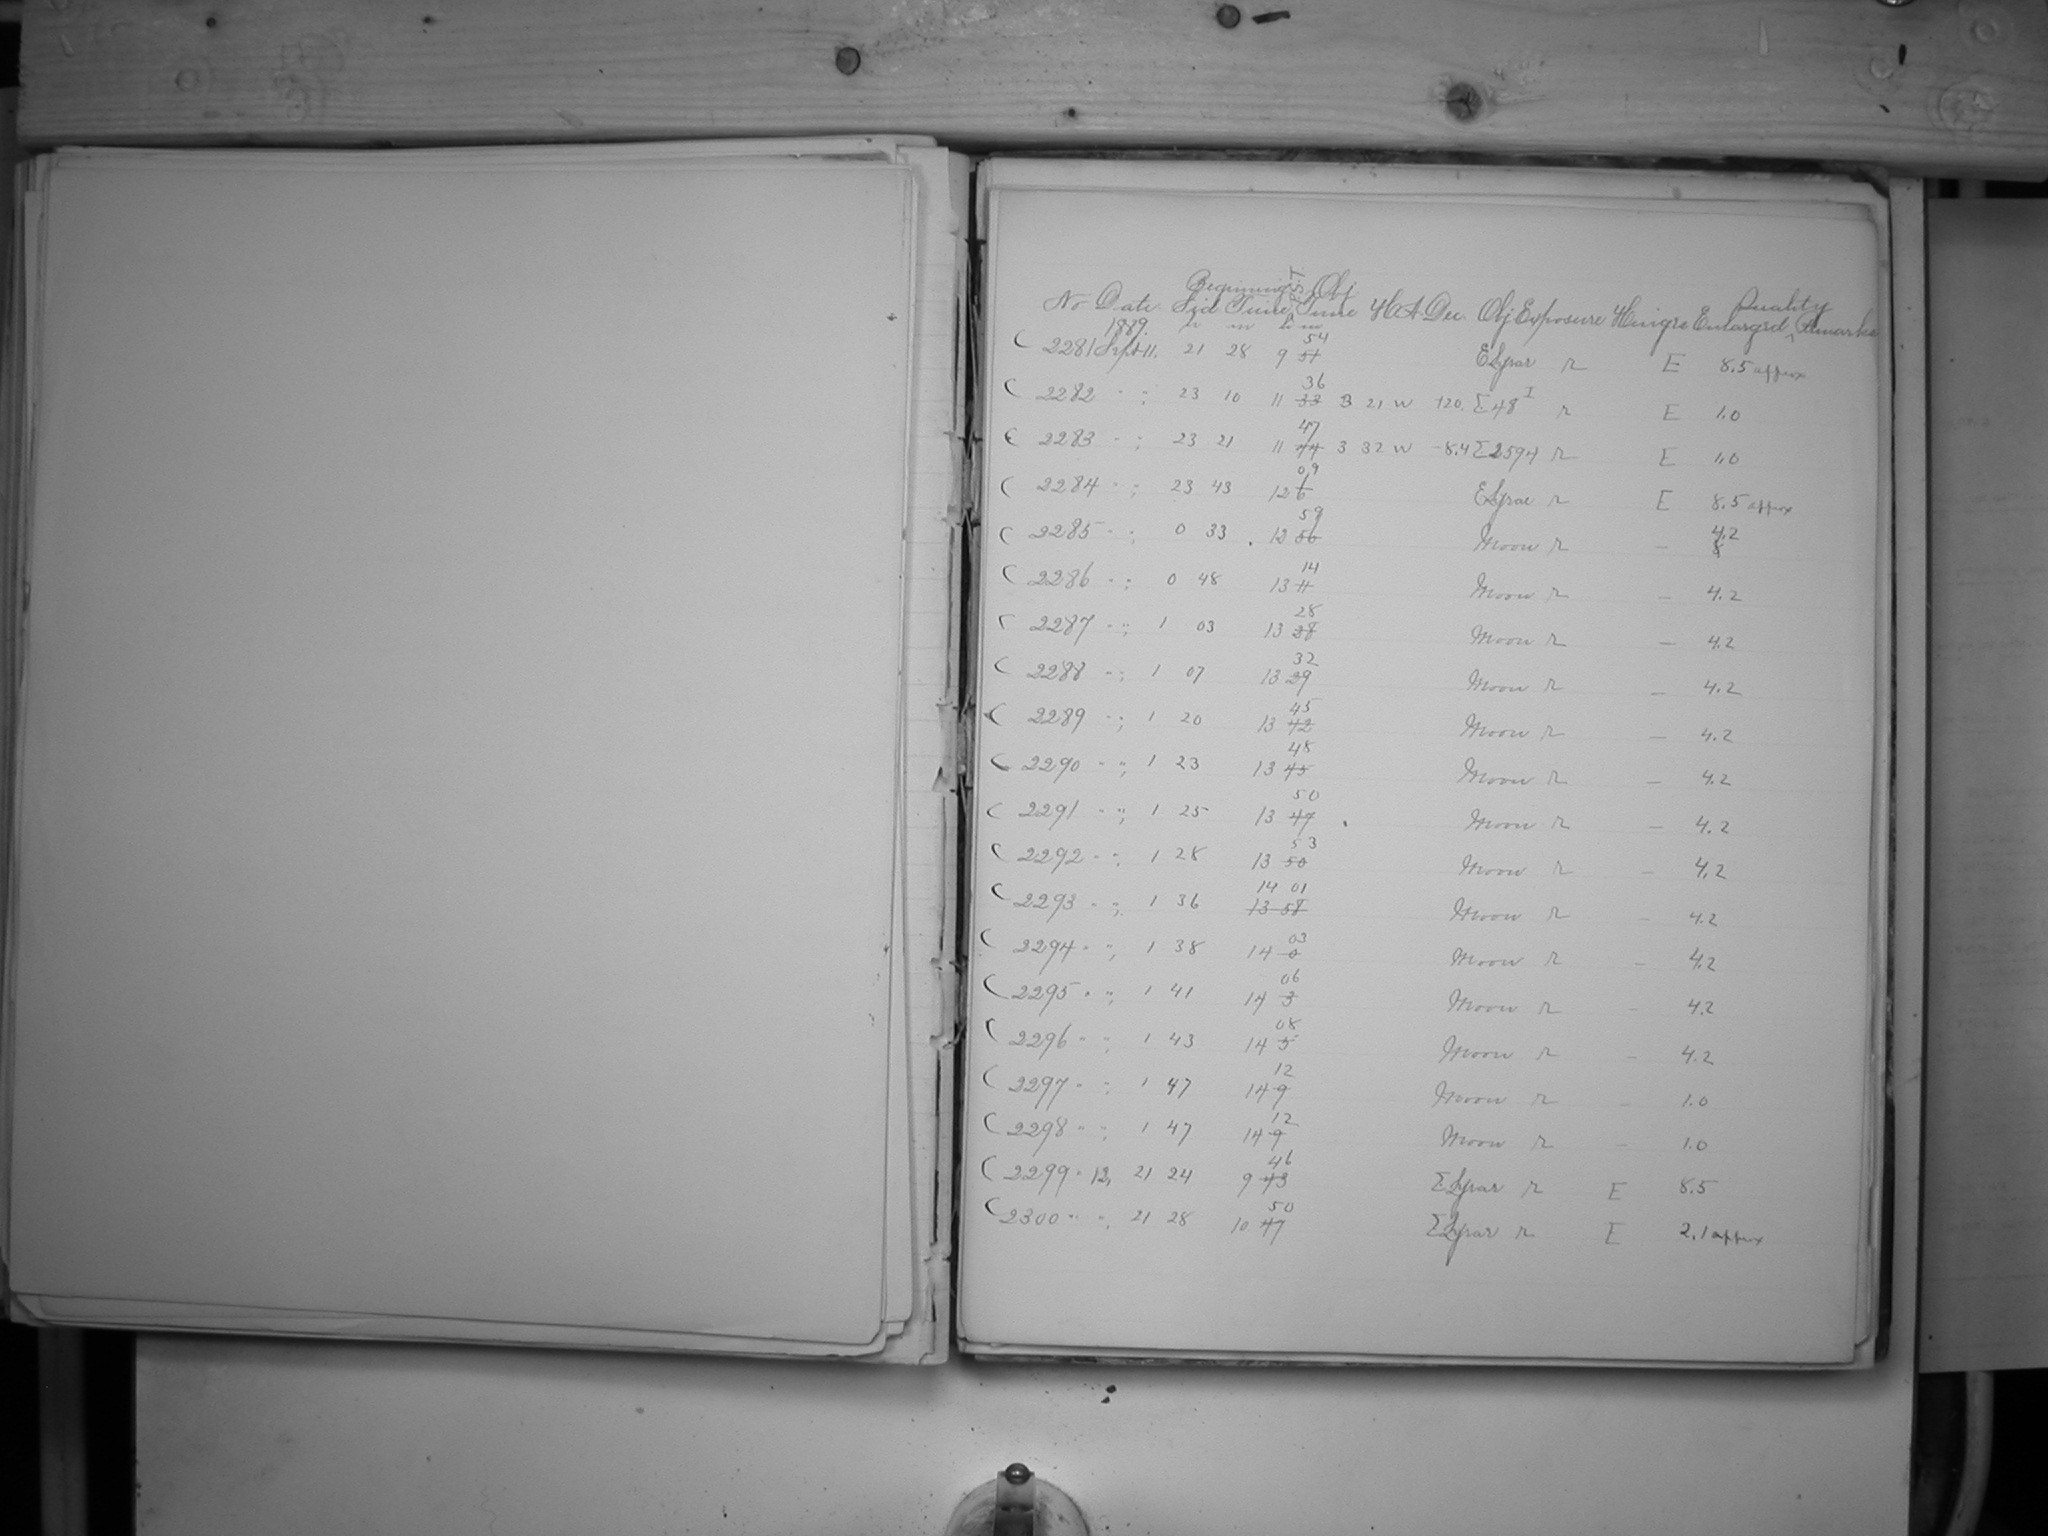 Beginning Obj
No Date Sid Time Time H A. Dec. Obj Exposure Hinge Enlargd Quality Remarks
1889. h m h m
54
2281 Sept 11. 21 28 9 51 E Lyrae r E 8.5 approx
36
2282 " " 23 10 11 33 3 21 W +20. Σ 48 I r E 1.0
47
2283 " " 23 21 11 44 3 32 W -8.4 Σ 2594 r E 1.0
09
2284 " " 23 43 12 6 E Lyrae r E 8.5 approx
59 4.2
2285 " " 0 33 . 12 56 Moon r - 8
14
2286 " " 0 48 13 11 Moon r - 4.2
28
2287 " " 1 03 13 28 Moon r - 4.2
32
2288 " " 1 07 13 29 Moon r - 4.2
45
2289 " " 1 20 13 42 Moon r - 4.2
48
2290 " " 1 23 13 45 Moon r - 4.2
50
2291 " " 1 25 13 47 Moon r - 4.2
53
2292 " " 1 28 13 50 Moon r - 4.2
14 01
2293 " " 1 36 13 58 Moon r - 4.2
03
2294 " " 1 38 14 0 Moon r - 4.2
06
2295 " " 1 41 14 3 Moon r - 4.2
08
2296 " " 1 43 14 5 Moon r - 4.2
12
2297 " " 1 47 14 9 Moon r - 1.0
12
2298 " " 1 47 14 9 Moon r - 1.0
46
2299 " 12, 21 24 9 43 Σ Lyrae r E 8.5
50
2300 " " 21 28 10 47 Σ Lyrae r E 2.1 approx